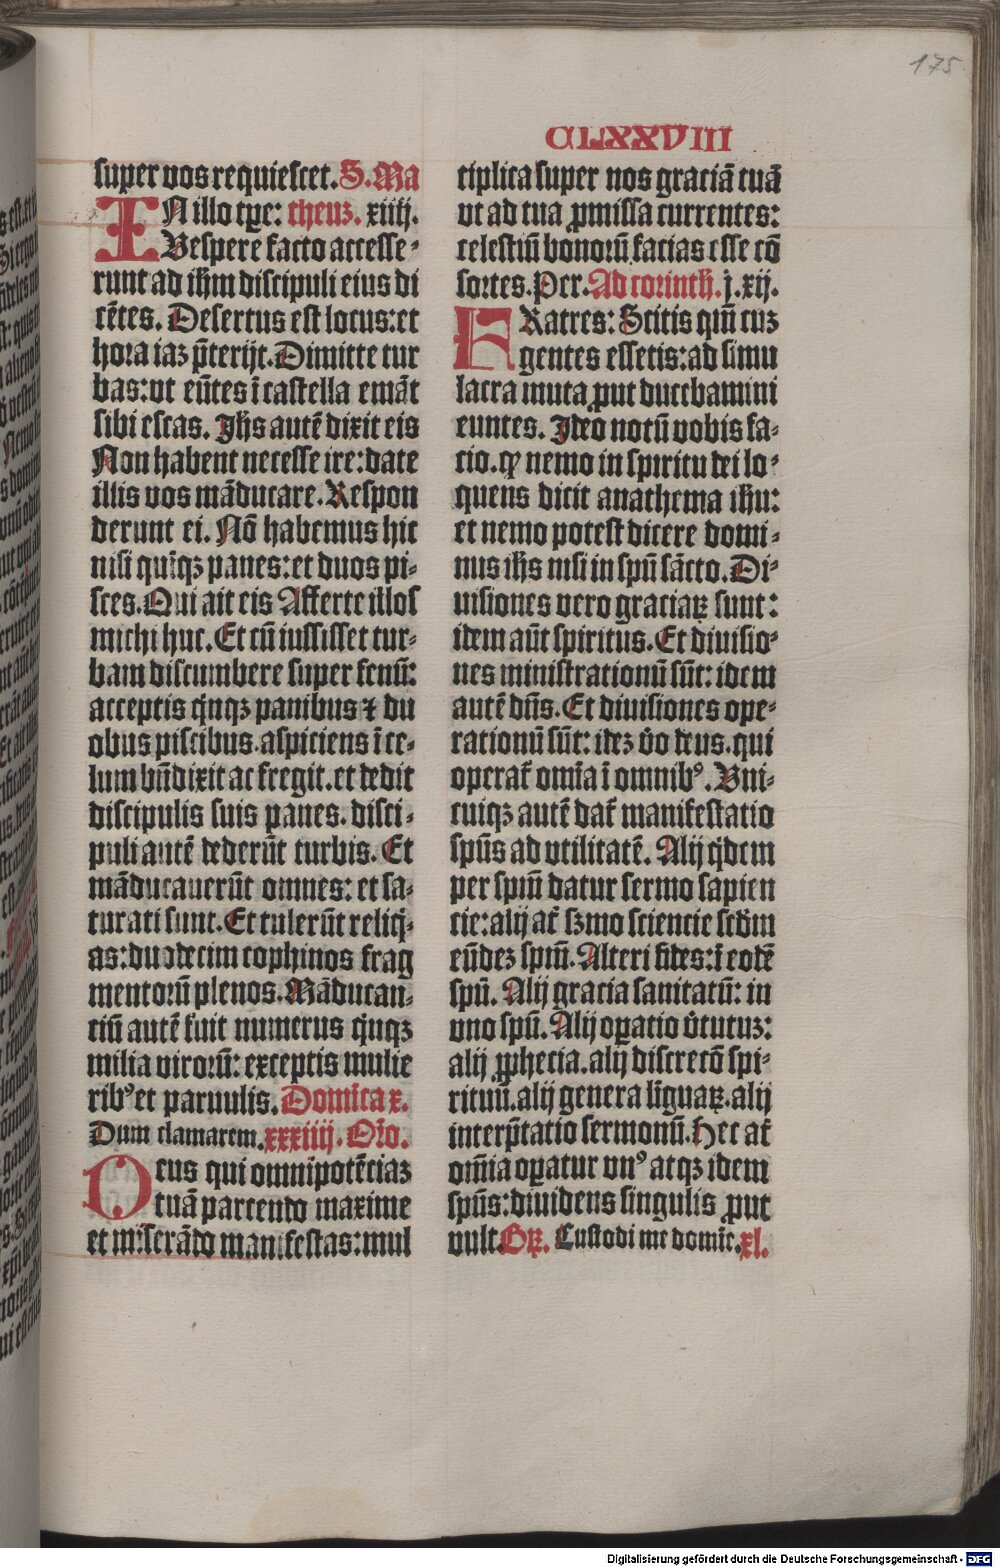 175
CLXXVIII
super vos requiescet. S. Ma
IN illo tpe: theuz. xiiij.
Vespere facto accesse-
runt ad ihm discipuli eius di
cētes. Desertus est locus: et
hora iaz p̄terijt. Dimitte tur
bas: vt eūtes ī castella emāt
sibi escas. Ihs autē dixit eis
Non habent necesse ire: date
illis vos māducare. Respon
derunt ei. Nō habemus hic
nisi quīqz panes: et duos pi-
sces. Qui ait eis Afferte illos
michi huc. Et cū iussisset tur-
bam discumbere super fenū:
acceptis q̇nqz panibus ⁊ du
obus piscibus. aspiciens ī ce-
lum bn̄dixit ac fregit. et dedit
discipulis suis panes. disci-
puli autē dederūt turbis. Et
māducauerūt omnes: et sa-
turati sunt. Et tulerūt reliq̇-
as: duodecim cophinos frag
mentorū plenos. Māducan-
tiū autē fuit numerus q̇nqz
milia virorū: exceptis mulie
ribꝰ et paruulis. Domīca x.
Dum clamarem. xxxiiij. Orō.
Deus qui omnīpotēciaz
tuā parcendo maxime
et miserādo manifestas: mul
tiplica super nos graciā tuā
vt ad tua ꝓmissa currentes:
celestiū bonorū facias esse cō
sortes. Per. Ad corinth. j. xij.
FRatres: Scitis qm̄ cuz
gentes essetis: ad simu
lacra muta ꝓut ducebamini
euntes. Ideo notū vobis fa-
cio. ꝙ nemo in spiritu dei lo-
quens dicit anathema ihu:
et nemo potest dicere domi-
nus ihs nisi in spū sācto. Di-
uisiones vero graciaꝝ sunt:
idem aūt spiritus. Et diuisio-
nes ministrationū sūt: idem
autē dn̄s. Et diuisiones ope-
rationū sūt: idez v̊o deus. qui
operat̄ omīa ī omnibꝰ. Vni-
cuiqz autē dat̄ manifestatio
spūs ad vtilitatē. Alij q̇dem
per spm̄ datur sermo sapien
cie: alij at̄ szmo sciencie scdm
eūdez spm̄. Alteri fides: ī eodē
spū. Alij gracia sanitatū: in
vno spū. Alij oꝑatio v̊tutuz:
alij ꝓphecia. alij discrecō spi-
rituū. alij genera līguaꝝ. alij
interp̄tatio sermonū. Hec at̄
om̄ia oꝑatur vnꝰ atqz idem
spūs: diuidens singulis ꝓut
vult. Gꝝ. Custodi me domīe. xl.
Digitalisierung gefördert durch die Deutsche Forschungsgemeinschaft - DFG